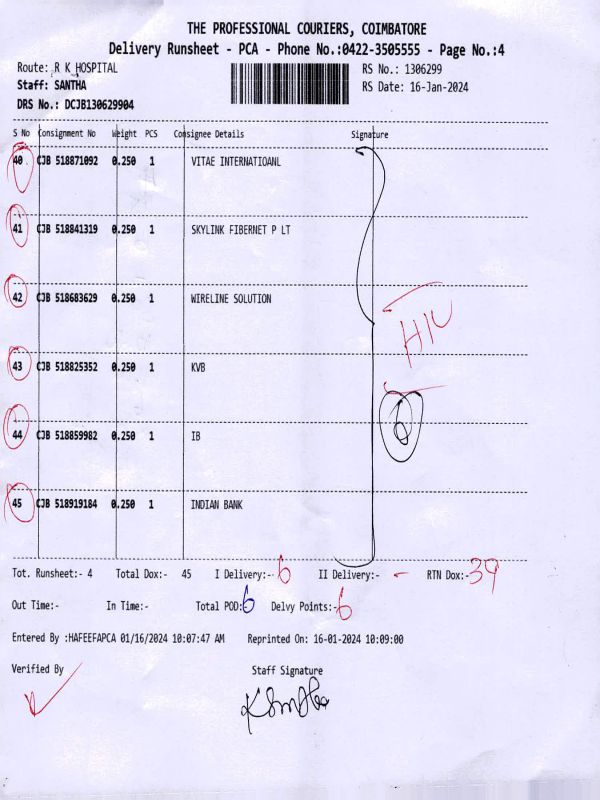 THE PROFESSIONAL COURIERS, COIMBATORE
Delivery Runsheet - PCA - Phone No.:0422-3505555 - Page No.:4
Route: R K HOSPITAL RS No.: 1306299
Staff: SANTHA RS Date: 16-Jan-2024
DRS No.: DCJB130629904
S No Consignment No Weight PCS Consignee Details Signature
40 CJB 518871092 0.250 1 VITAE INTERNATIOANL
41 CJB 518841319 0.250 1 SKYLINK FIBERNET P LT
42 CJB 518683629 0.250 1 WIRELINE SOLUTION
43 CJB 518825352 0.250 1 KVB
6
44 CJB 518859982 0.250 1 IB
45 CJB 518919184 0.250 1 INDIAN BANK
Tot. Runsheet:- 4 Total Dox:- 45 I Delivery:- 6 II Delivery:- - RTN Dox:- 39
Out Time:- In Time:- Total POD:- 6 Delvy Points:- 6
Entered By :HAFEEFAPCA 01/16/2024 10:07:47 AM Reprinted On: 16-01-2024 10:09:00
Verified By Staff Signature